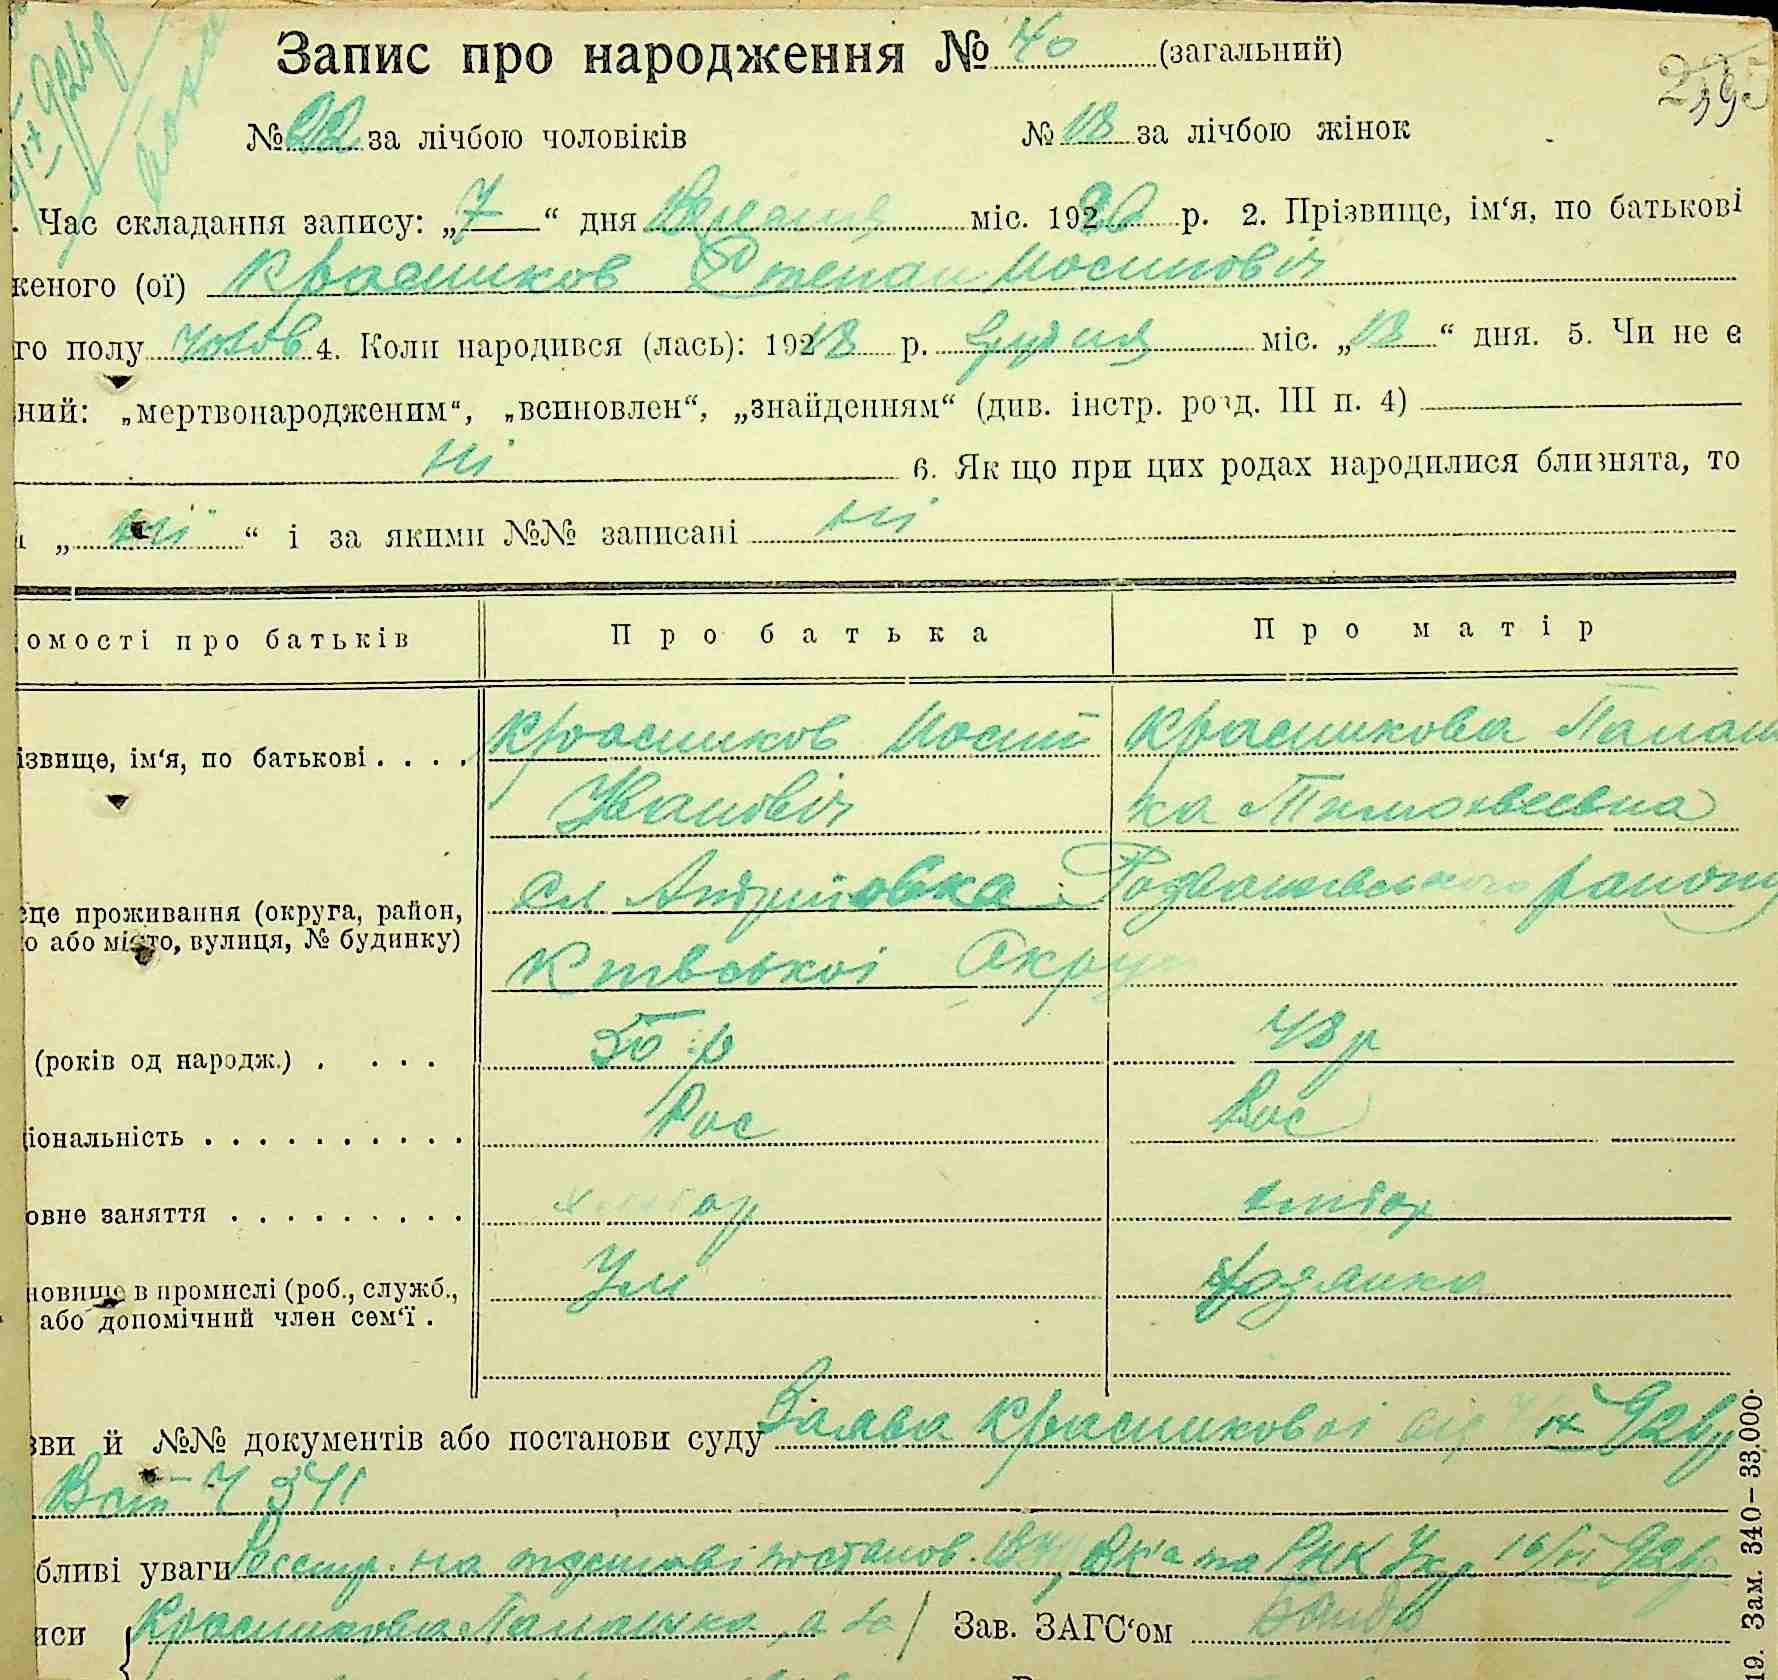 Запис про народження № 40 (загальний)
№ 22 за лічбою чоловіків № 18 за лічбою жінок
Час складання запису: „7“ дня Вересня міс. 192 р. 2. Прізвище, ім‘я, по батькові
женого (ої) Красников Степан Иосипович
го полу чолов 4. Коли народився (лась): 192 р. Грудня міс. „18“ дня. 5. Чи не є
ний: „мертвонародженим“, „всиновлен“, „знайденням“ (див. інстр. розд. III п. 4)
ні 6. Як що при цих родах народилися близнята, то
„ні“ і за якими №№ записані ні
омості про батьків Про батька Про матір
ізвище, ім‘я, по батькові . . . . Красников Иосип Красникова Палаш
Иванович ка Тимофеевна
це проживання (округа, район, сл Андриівка Розважівського району
о або місто, вулиця, № будинку) Київської Округ
(років од народж.) . . . . 50 р 43 р
іональність . . . . . . . . . . Рос Рос
овне заняття . . . . . . . . . хлібор хлібор
новище в промислі (роб., служб., Ум
або допомічний член сем‘ї .
зви й №№ документів або постанови суду Заява Красникової від IX 926р
Ч 541
бливі уваги Реєстр. на підставі постанов. ВУЦВК'а та РНК Укр 16/VI 926р
иси Красникова Палашка, а за Зав. ЗАГС‘ом
19. Зам. 340—33.000.